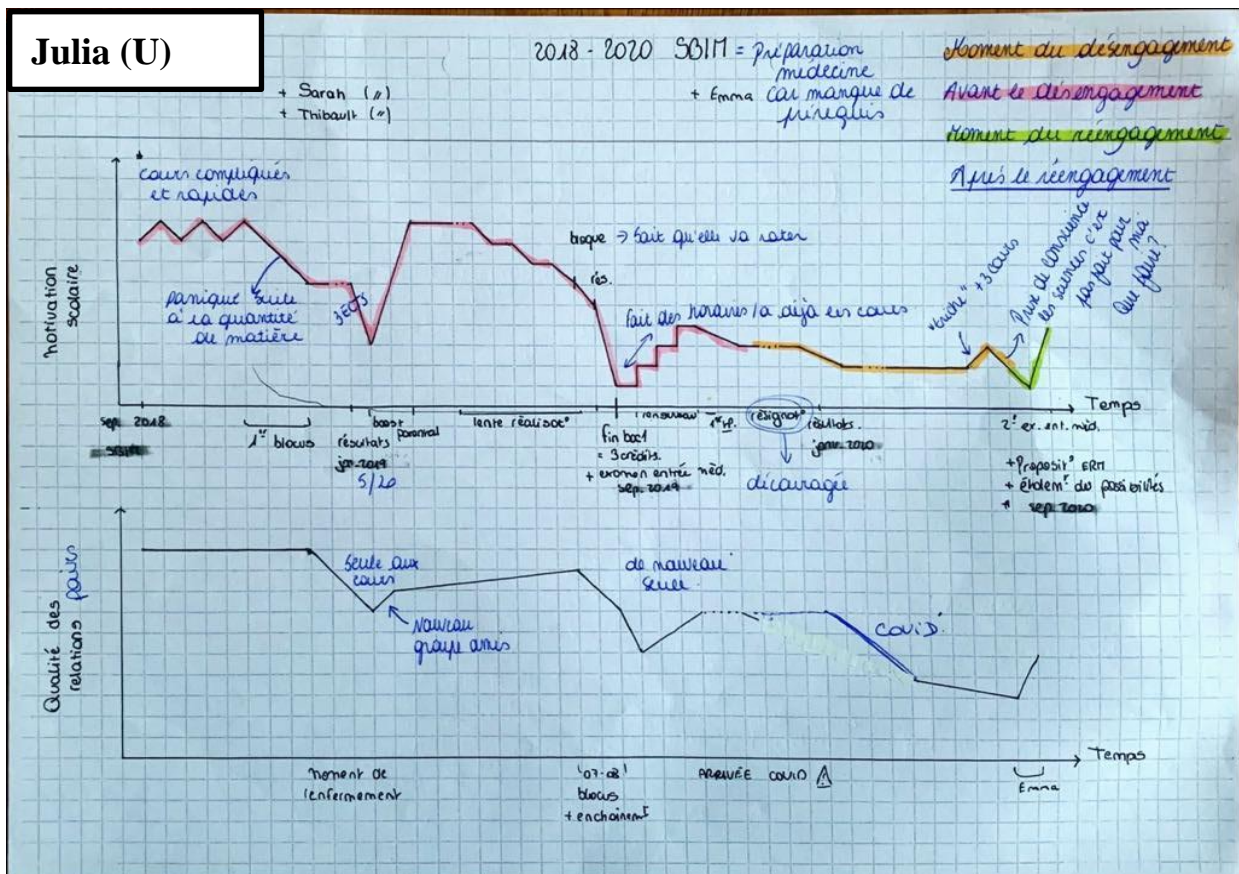 Julia (U)
2018 - 2020 SBIM = Préparation
médecine
car manque de
prérequis
+ Sarah (")
+ Thibault (")
+ Emma
Moment du désengagement
Avant le désengagement
Moment du réengagement
Après le réengagement
Motivation
scolaire
cours compliqués
et rapides
panique suite
à la quantité
de matière
3 ECTS
bloque → sait qu'elle va rater
rés.
fait des horaires/a déjà eu cours
"triche" + 3 cours
Prise de conscience
les sciences c'est
pas fait pour
moi
Que faire?
Temps
sep. 2018
SBIM
1er blocus
résultats
jan. 2019
5/20
boost
parental
lente réalisat°
fin bac1
= 3 crédits
+ examen entrée méd.
sep. 2019
renouveau
résignat°
découragée
résultats
janv. 2020
2e ex. ent. méd.
+ Proposit° ERM
+ étalemt des possibilités
sep. 2020
Qualité des
relations pairs
Seule aux
cours
Nouveau
groupe amis
de nouveau
seule
COVID
Temps
moment de
l'enfermement
'07-08'
blocus
+ enchainemt
ARRIVÉE COVID
Emma